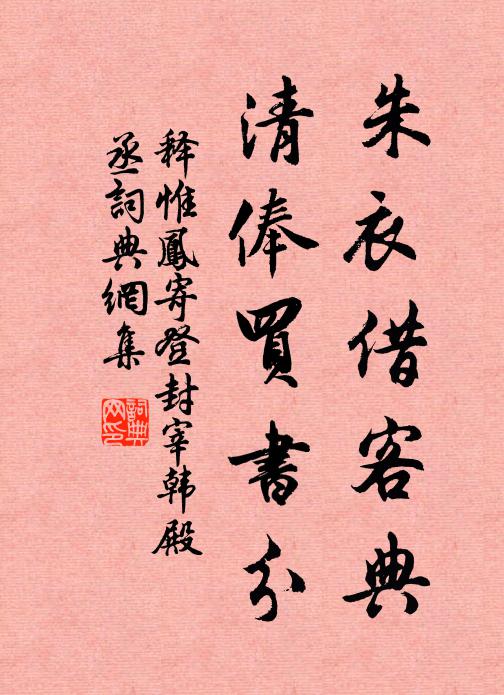 朱衣借客典
清俸買書分
释惟鳳寄登封宰韩殿
丞詞典網集
詞典
网印